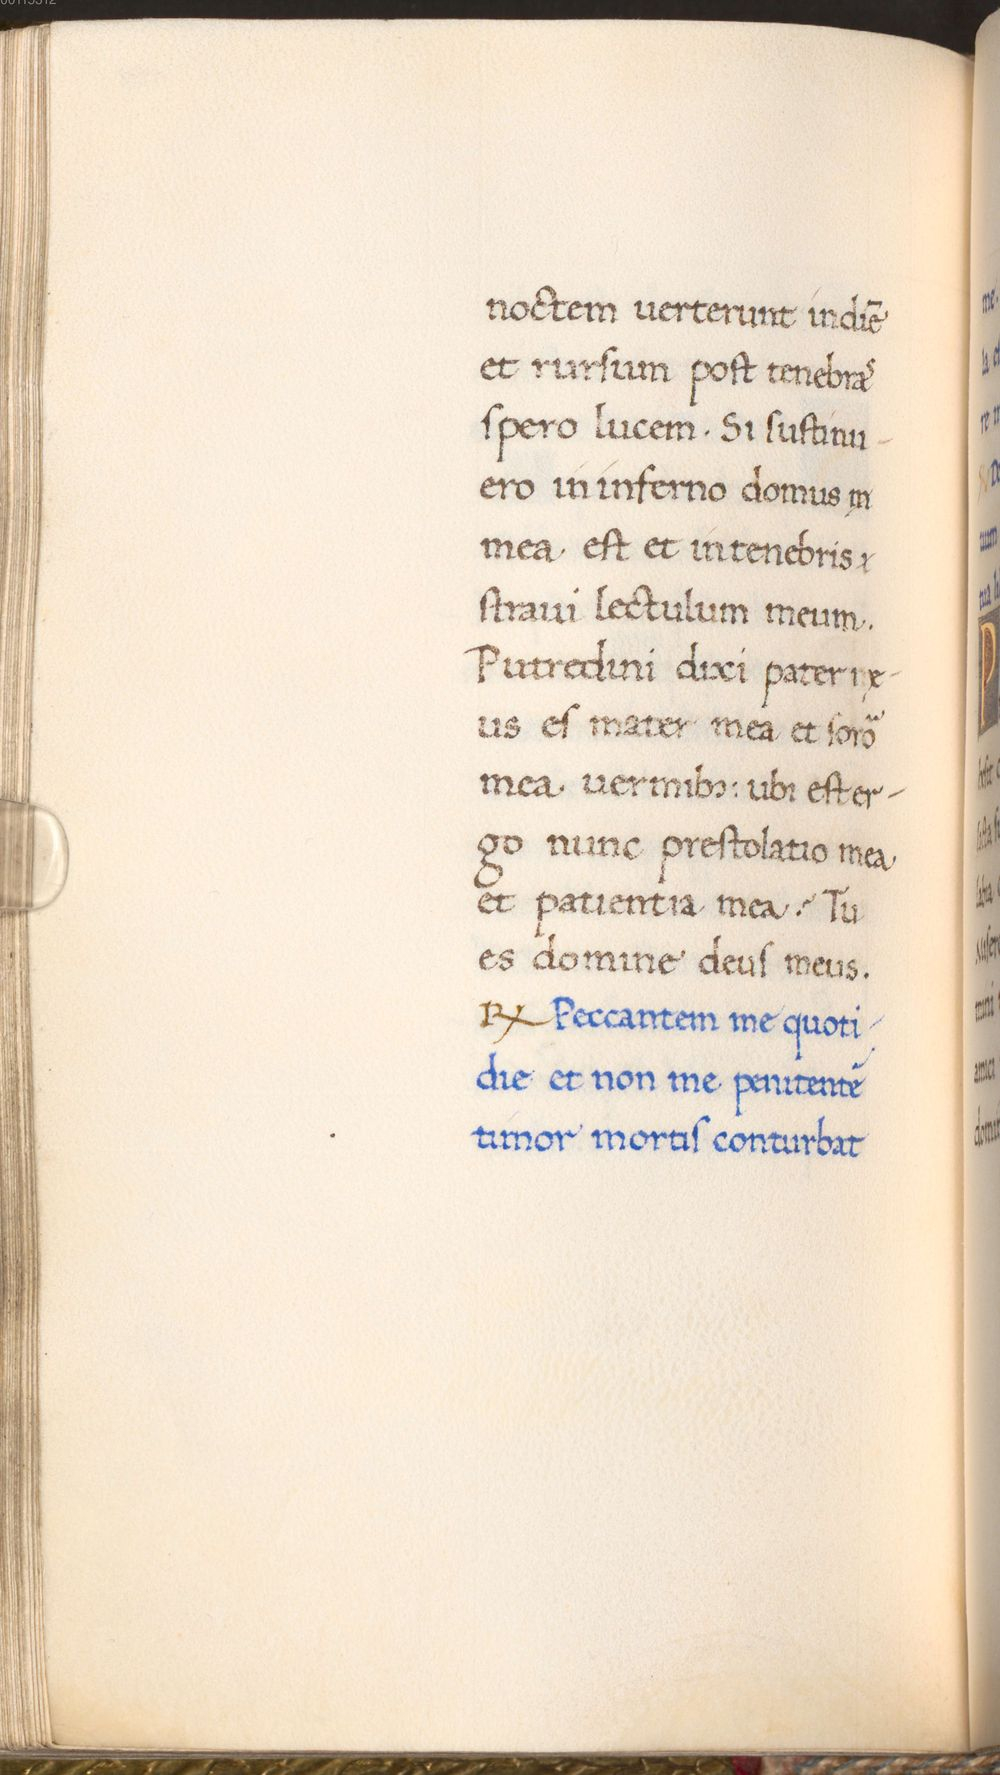 noctem uerterunt in diē
et rursum post tenebras
spero lucem. Si sustinu-
ero in inferno domus
mea est et in tenebris
straui lectulum meum.
Putredini dixi pater me-
us es mater mea et soror
mea uermib3: ubi est er-
go nunc prestolatio mea
et patientia mea. Tu
es domine deus meus.
℞ Peccantem me quoti-
die et non me penitentē
timor mortis conturbat